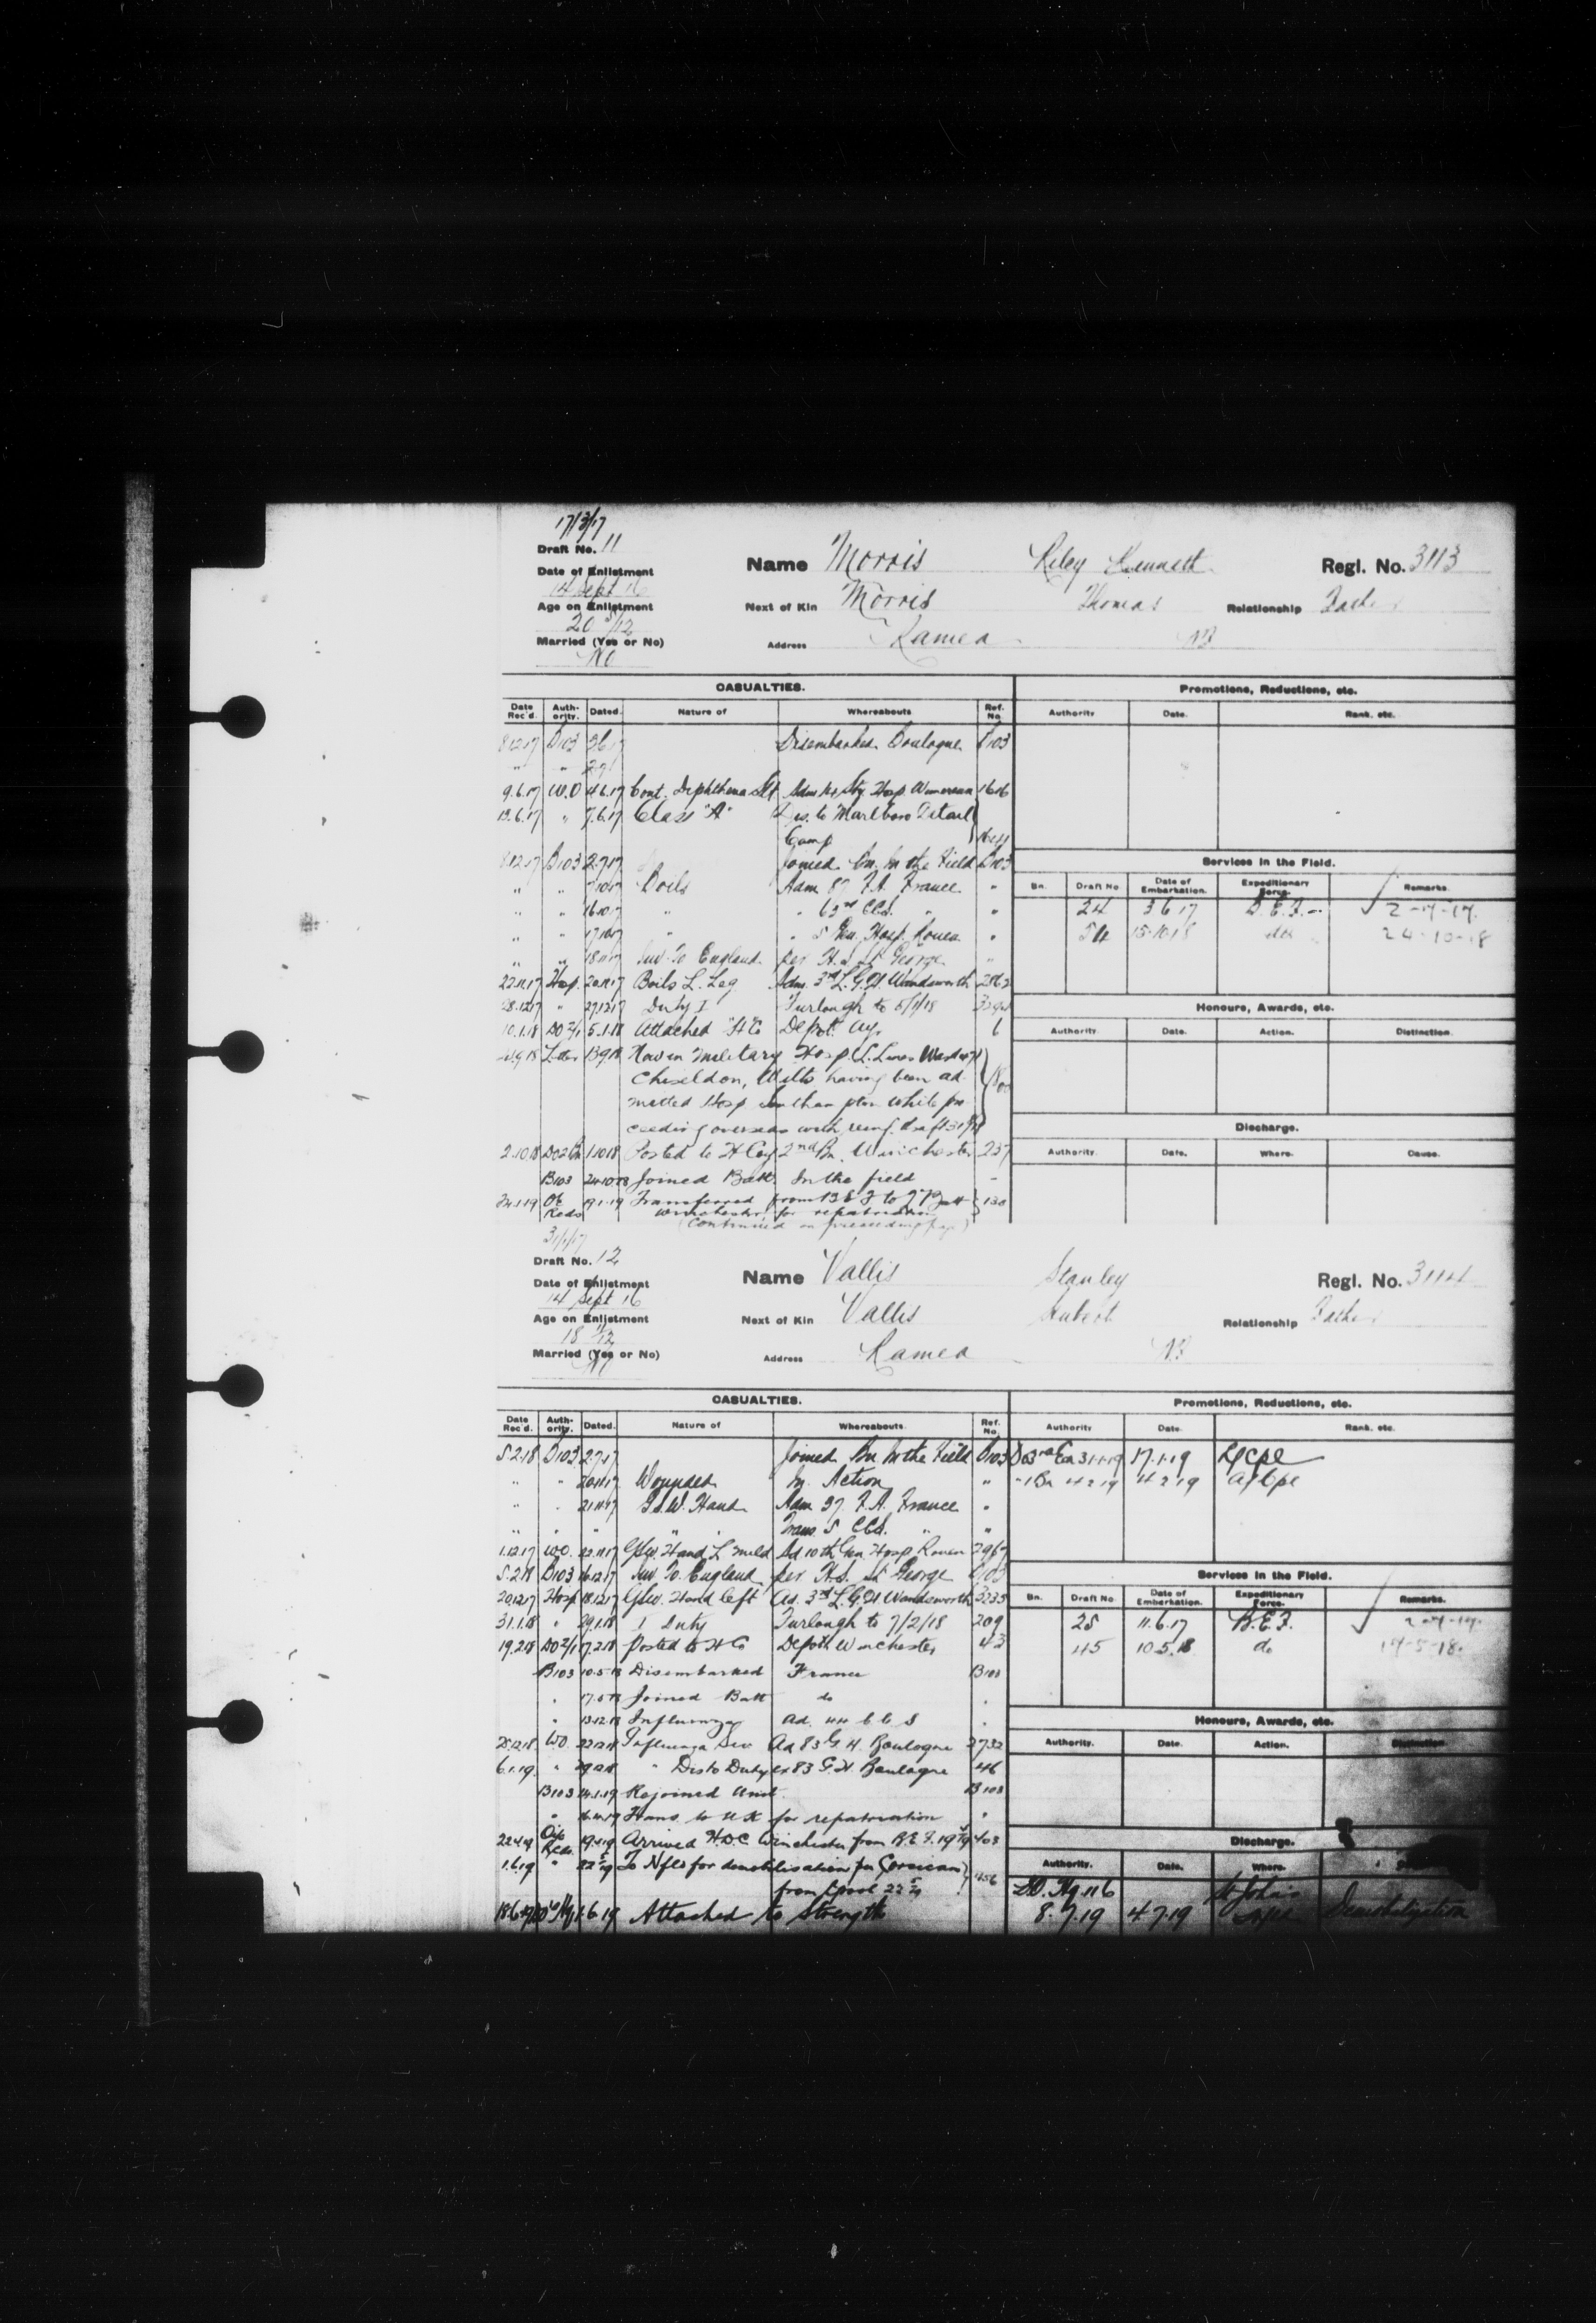 17/3/17
Draft No. 11
Name Morris Riley Kenneth Regl. No. 3113
Date of Enlistment
14 Sept 16
Age on Enlistment Next of Kin Morris Thomas Relationship Father
20
Married (Yes or No) Address Ramea Nfld
No
CASUALTIES. Promotions, Reductions, etc.
Date Rec'd. Authority. Dated. Nature of Whereabouts Ref. No. Authority Date. Rank, etc.
8.12.17 B103 3.6.17 Disembarked Boulogne B103
" "
9.6.17 W.O 4.6.17 Cont. Diphtheria Hosp Wimereux 1616
13.6.17 " 7.6.17 Class "A" Dis. to Marlboro Detail
Camp
8.12.17 B103 2.7.17 Joined Bn. In the Field B103 Services in the Field.
" " Boils Adm 87 F.A. France " Bn. Draft No Date of Embarkation. Expeditionary Force. Remarks.
" " 16.10.17 " " 63rd CCS. " " 24 3 6 17 B.E.F. 2-7-17.
" " " 5 Gen. Hosp. Rouen " 54 15.10.18 do 24-10-18
" " 18.11.17 Inv. To England per H.S. St George "
22.11.17 Hosp. 20.11.17 Boils L. Leg Adm. 3rd L.G.H Wandsworth
28.12.17 " 27.12.17 Duty I Furlough to 5/1/18 Honours, Awards, etc.
10.1.18 DO 2/1 5.1.18 Attached "H" Co Depot Ayr 6 Authority. Date. Action. Distinction.
Letter 13.9.18 Now in Military Hosp
Chiseldon, Wilts having been ad-
mitted Hosp Southampton while pro-
ceeding overseas with reinf. draft Discharge.
2.10.18 1.10.18 Posted to H Coy 2nd Bn. Winchester 237 Authority. Date. Where. Cause.
B103 24.10.18 Joined Batt. In the field -
24.1.19 O/c Recds 19.1.19 Transferred from B E F to 2nd Batt 130
Winchester for repatriation
(Continued on preceeding page)
31/1/17
Draft No. 12
Name Vallis Stanley Regl. No. 3114
Date of Enlistment
14 Sept 16
Age on Enlistment Next of Kin Vallis Hubert Relationship Father
18
Married (Yes or No) Address Ramea Nfld
No
CASUALTIES. Promotions, Reductions, etc.
Date Rec'd. Authority. Dated. Nature of Whereabouts. Ref. No. Authority Date. Rank, etc.
5.2.18 B103 2.7.17 Joined Bn. In the Field B103 31.1.19 17.1.19 L/Cpl
" " 20.11.17 Wounded In Action " 1 Bn 4 2 19 4 2 19 A/Cpl
" " 21.11.17 G.S.W. Hand Adm 37 F.A. France "
" " " " " Trans. 5 CCS. " "
1.12.17 WO. 22.11.17 GSW. Hand L mild Ad 10th Gen Hosp Rouen 2967
5.2.18 B103 16.12.17 Inv To England per H.S. St George B103 Services in the Field.
20.12.17 Hosp 18.12.17 GSW. Hand left Ad. 3rd L.G.H Wandsworth 3235 Bn. Draft No. Date of Embarkation. Expeditionary Force. Remarks.
31.1.18 " 29.1.18 I Duty Furlough to 7/2/18 209 25 11.6.17 B.E.F. 2-7-17.
19.2.18 DO 2/1 17.2.18 Posted to H Co Depot Winchester 43 45 10.5.18 do 17-5-18.
B103 10.5.18 Disembarked France B103
" 17.5.18 Joined Batt do "
" 13.12.18 Influenza Ad. 44 C C S " Honours, Awards, etc.
28.12.18 WO. 22.12.18 Influenza Sev Ad 83 G. H. Boulogne 2732 Authority. Date. Action. Distinction.
6.1.19 " 29.12.18 " Dis to Duty ex 83 G. H Boulogne 46
B103 14.1.19 Rejoined Unit B103
" Trans. to UK for repatriation "
22.4.19 O/c Recds. 19.4.19 Arrived H.D.C Winchester from B.E.F. 403 Discharge.
1.6.19 " To Nfld for demobilisation per Corsican Authority. Date. Where.
from L'pool 22 D.O. Hq 116 St John's
18.6.19 1.6.19 Attached to Strength 8.7.19 4.7.19 Nfld Demobilization